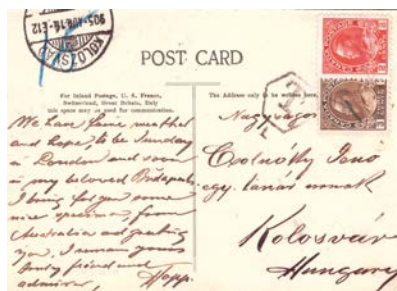 KOLOZSVÁR
POST CARD
For Inland Postage, U. S. France,
Switzerland, Great Britain, Italy
this space may be used for communication.
The Address only to be written here.
We have fine weather
and hope, to be Sunday
in London and soon
in my beloved Budapest.
I bring for you some
nice specimen, from
Australia and greeting
you, I remain yours
friend and
admirer,
Hopp.
T
Nagyságos
Csolnoky Jenő
egy. tanár urnak
Kolosvár
Hungary